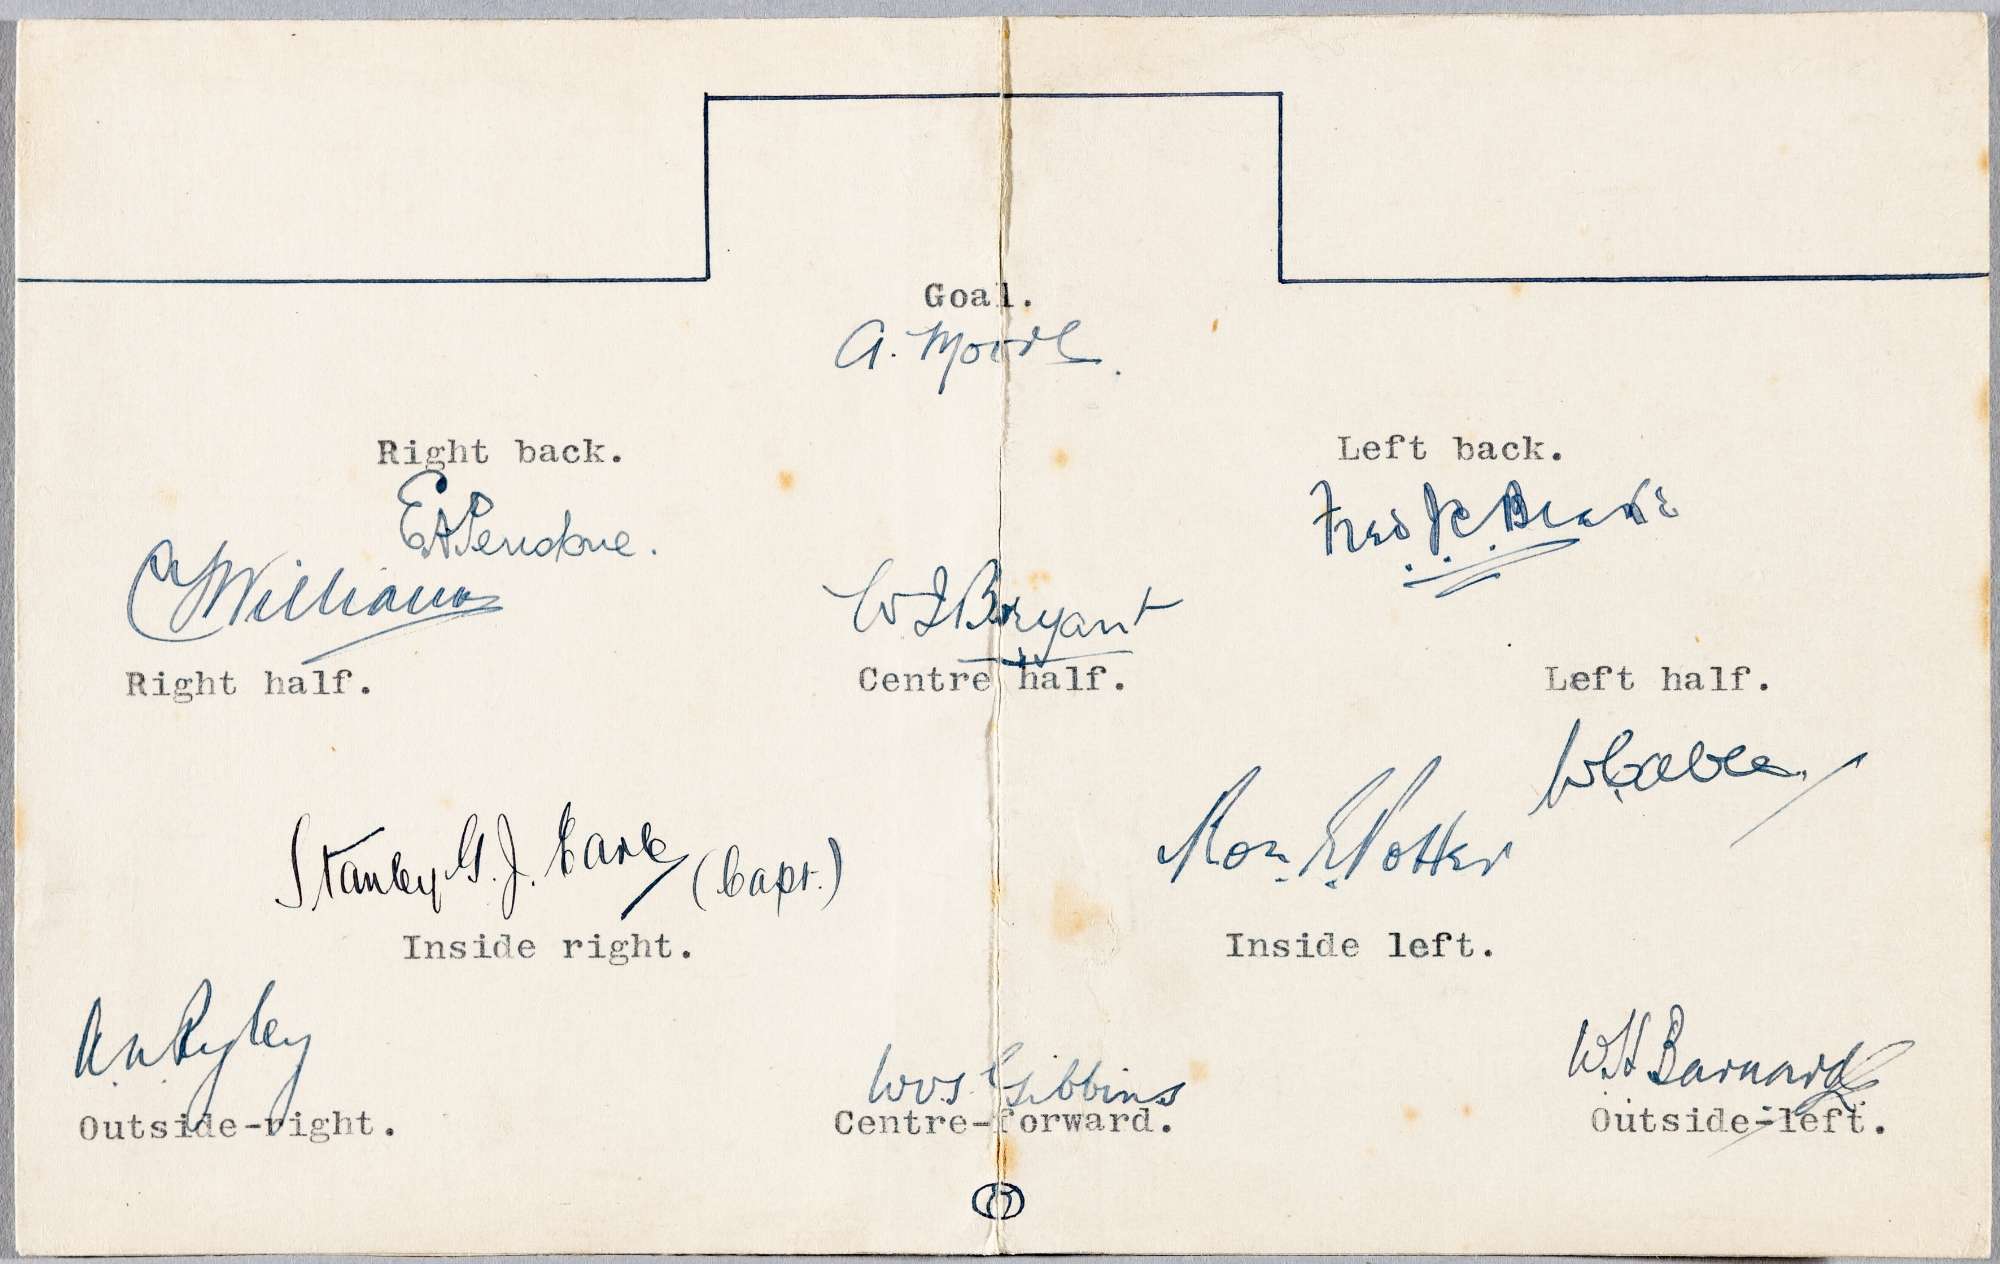 Goal.
A. Moore.
Right back.
Left back.
E A Pendrane.
Fred J. C. Beale
C J Williams
W I Bryant
Right half.
Centre half.
Left half.
W Cable
Stanley G. J. Earle (Capt.)
Ron. E. Potter
Inside right.
Inside left.
Ryley
W V S Gibbins
W H Barnard
Outside-right.
Centre-forward.
Outside-left.